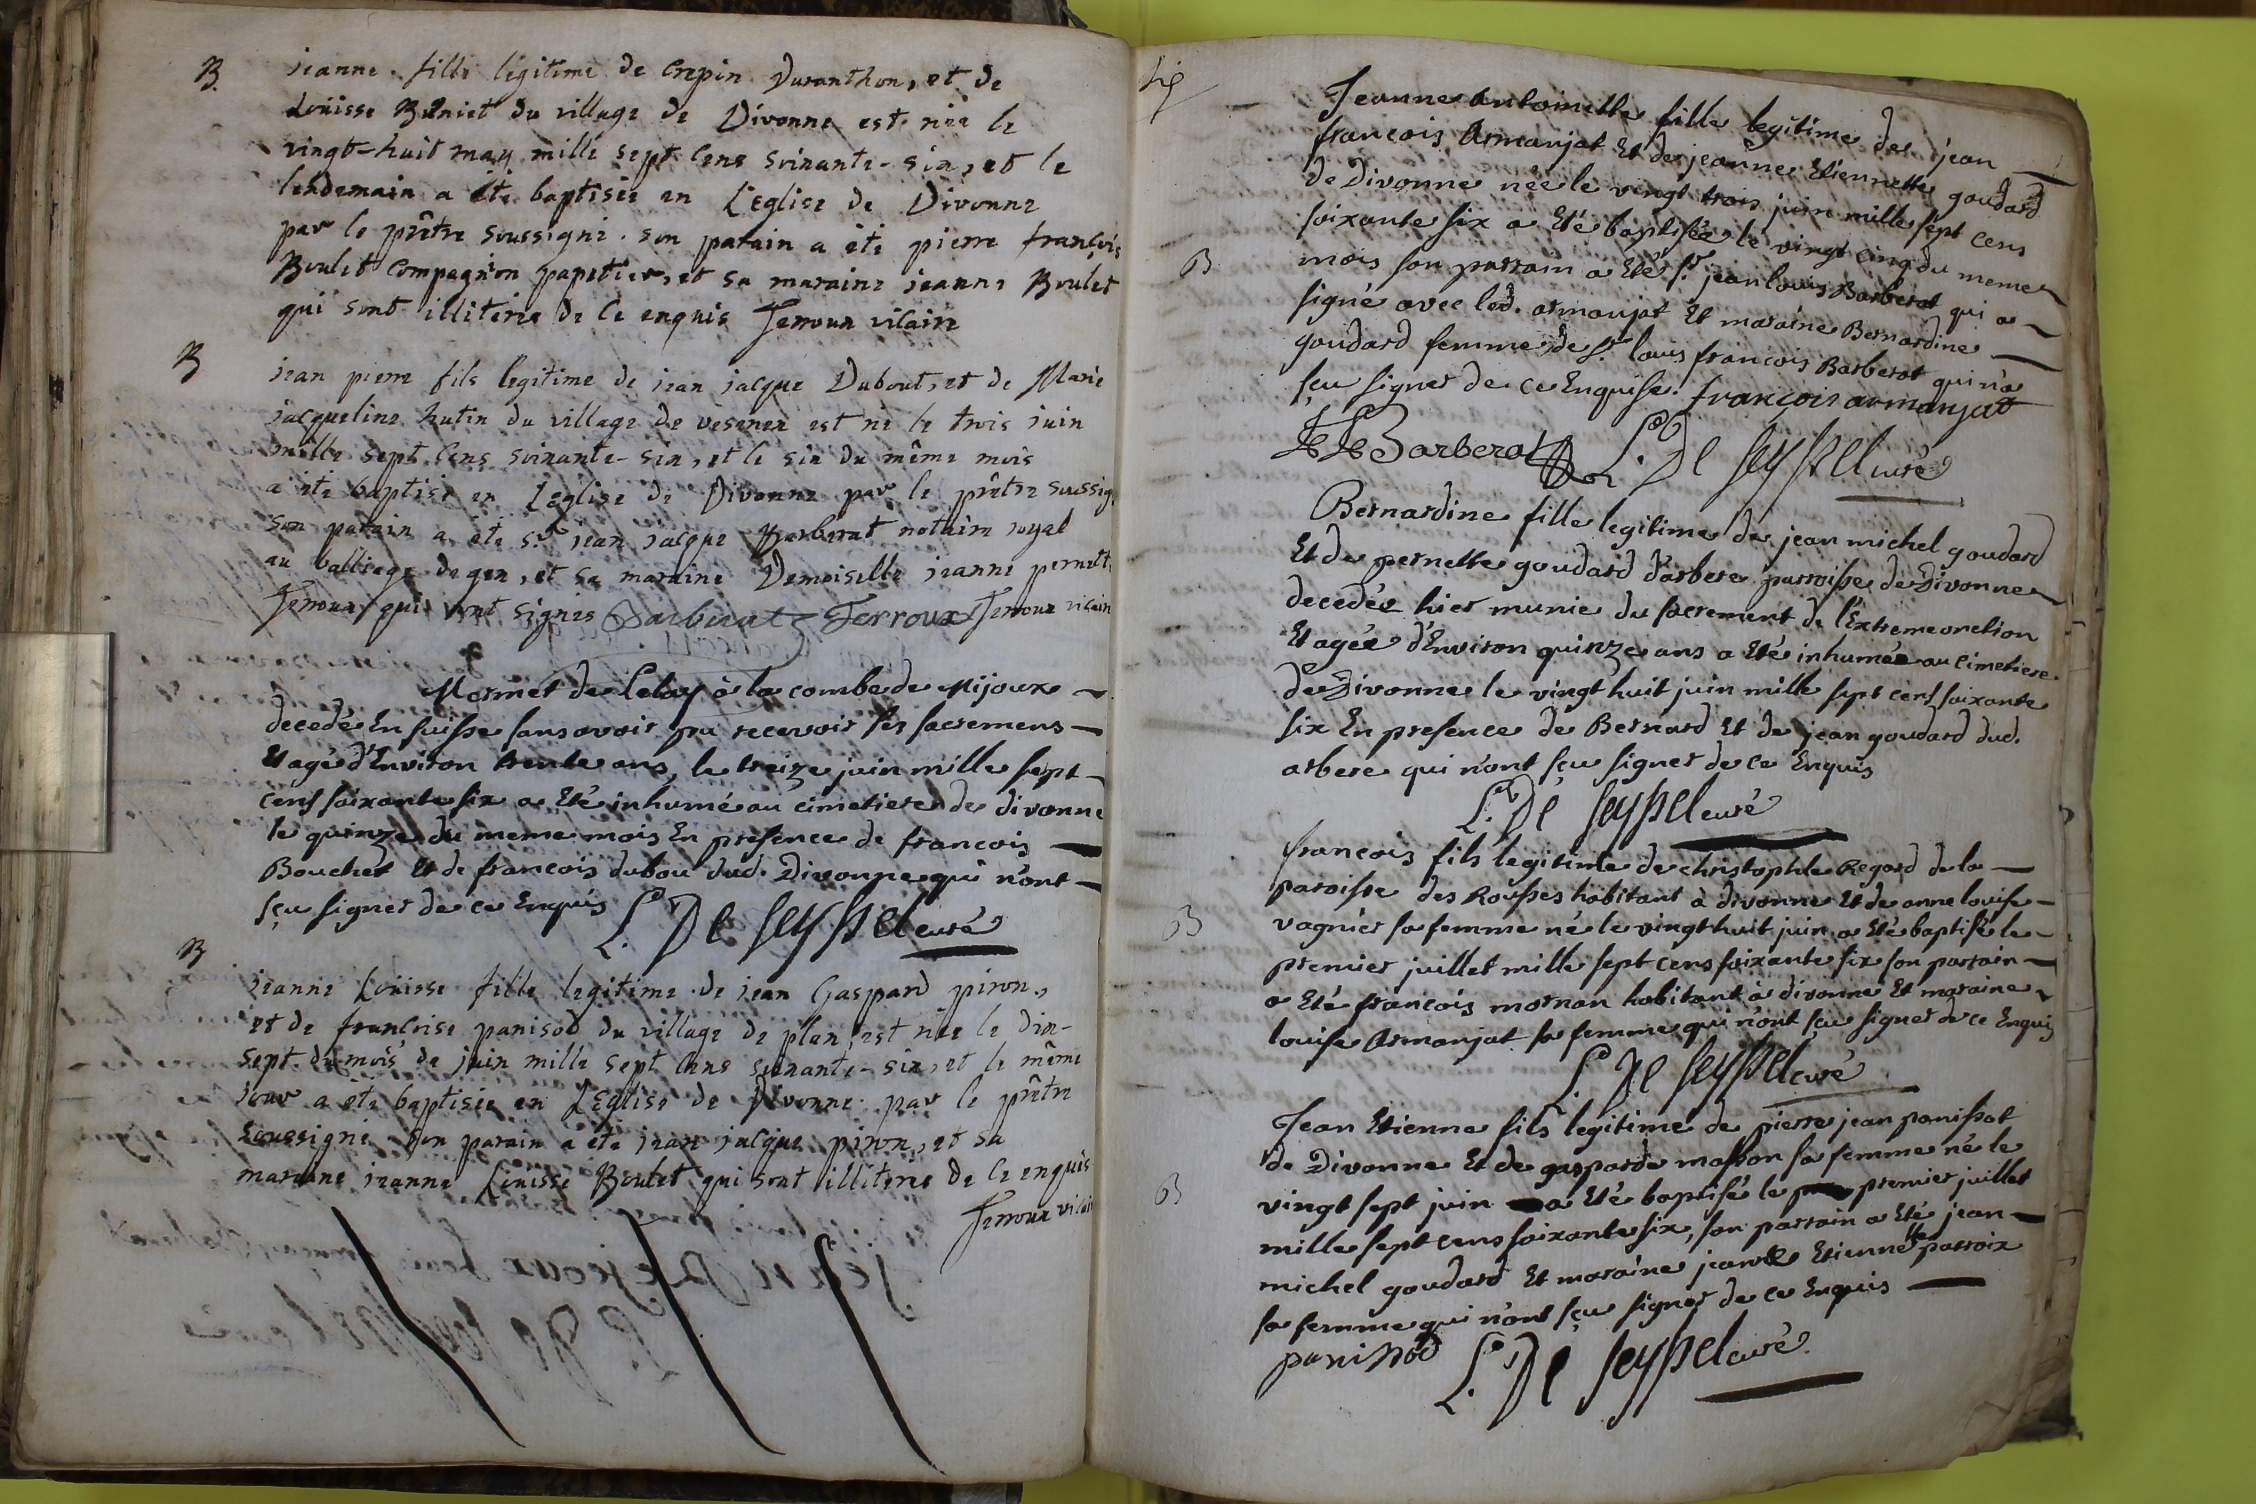 B.
jeanne fille légitime de Crepin Duranthon, et de
Loüisse Buniet du village de Divonne est néé le
vingt-huit may mille sept cens soixante-six, et le
lendemain a été baptisée en L'Eglise de Divonne
par le prêtre soussigné. son parain a été pierre françois
Boulet compagnon papetier, et sa maraine jeanne Boulet
qui sont illiterés de ce enquis ferroux vicaire
B
jean pierre fils legitime de jean jacque Dubout, et de Marie
jacqueline hutin du village de vesenex est né le trois juin
mille sept cens soixante-six, et le six du même mois
a été baptisé en L'eglise de Divonne par le prêtre soussig.
son parain a été s.r jean jacque Barberat notaire royal
au balliage de gex, et sa maraine Demoiselle jeanne pernette
ferroux qui ont signés Barberat Ferroux ferroux vicaire
Mormet de Lelex à la combe de Mijoux
decedé En suisse sans avoir pu recevoir ses sacremens
Et agé d'Environ trente ans, le treize juin mille sept
cens soixante six a Eté inhumé au cimetiere de divonne
le quinze du meme mois En presence de francois
Bouchet Et de francois dubou dud. Divonne qui n'ont
sçu signer de ce Enquis L. De seyssel curé
B
jeanne Loüisse fille legitime de jean Gaspard piron,
et de françoise panisod du village de plan, est née le dix-
sept du mois de juin mille sept cens soixante-six, et le même
jour a été baptisée en L'Eglise de Divonne par le prêtre
soussigné son parain a été jean jacque piron, et sa
maraine jeanne Louisse Boulet qui sont illiterés de ce enquis
ferroux vicaire
Jeanne Antoinette fille legitime de jean
francois Armanjat Et de jeanne Etiennette goudard
de Divonne née le vingt trois juin mille sept cens
soixante six a Eté baptisée le vingt cinq du meme
B
mois son parrain a Eté s.r jean louis Barberat qui a
signé avec led. armanjat Et maraine Bernardine
goudard femme de s.r louis francois Barberat qui n'a
sçu signer de ce Enquise. françois armanjat
Barberat L. De seyssel curé
Bernardine fille legitime de jean michel goudard
Et de pernette goudard d'arbere parroisse de Divonne
decedée hier munie du sacrement de l'Extreme onction
Et agée d'Environ quinze ans a Eté inhumée au cimetiere
de Divonne le vingt huit juin mille sept cens soixante
six En presence de Bernard Et de jean goudard dud.
arbere qui n'ont sçu signer de ce Enquis
L. De seyssel curé
francois fils legitime de christophle Regard de la
paroisse des Rousses habitant à divonne Et de anne louise
B
vagnier sa femme né le vingt huit juin a Eté baptisé le
premier juillet mille sept cens soixante six son parrain
a Eté francois mornan habitant à divonne Et maraine
louise Armanjat sa femme qui n'ont sçu signer de ce Enquis
L. De seyssel curé
Jean Etienne fils legitime de pierre jean panissot
de Divonne Et de gasparde masson sa femme né le
B
vingt sept juin a Eté baptisé le premier juillet
mille sept cens soixante six, son parrain a Eté jean
michel goudard Et maraine jeanne Etiennette parroix
sa femme qui n'ont sçu signer de ce Enquis
panissod L. De seyssel curé